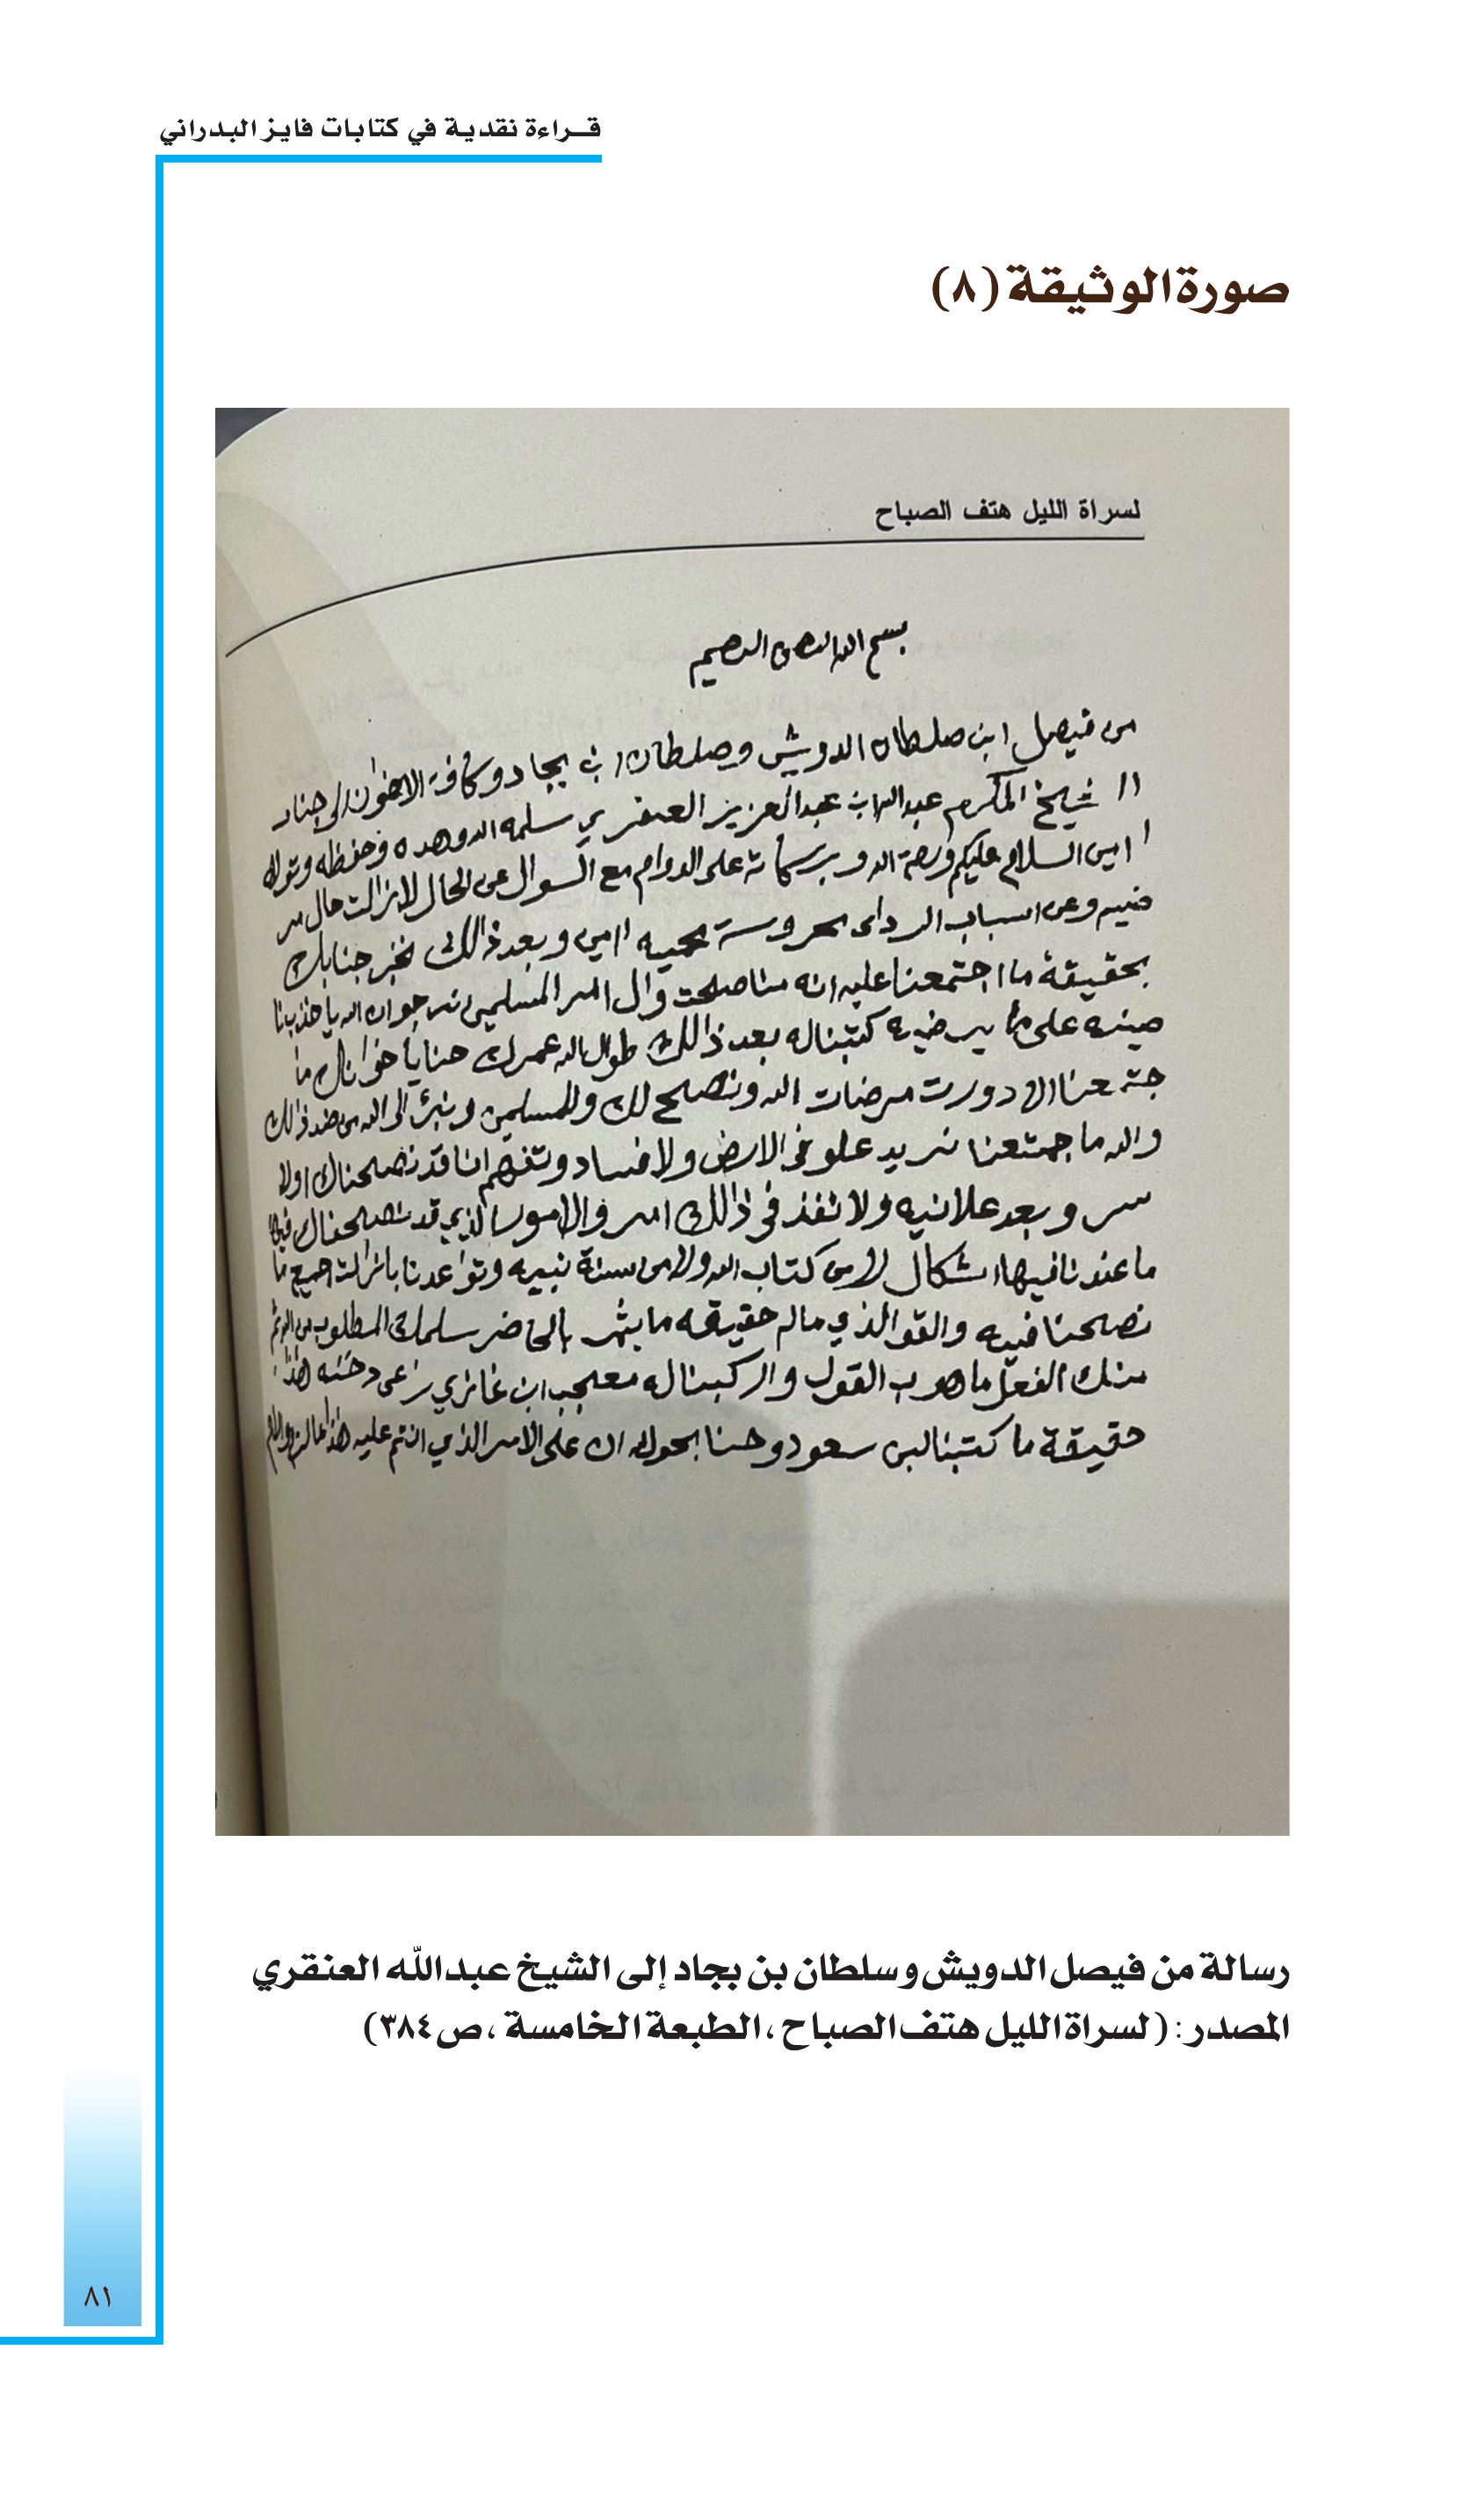 قــراءة نقدية في كتابات فايز البدراني
صورة الوثيقة (٨)
لسراة الليل هتف الصباح
بسم الله الرحمن الرحيم
من فيصل ابن صلطان الدويش وصلطان ابن بجاد وكافة الاخوان الى جناب
الشيخ المكرم عبدالله ابن عبدالعزيز العنقري سلمه الله وهداه وحفظه وتولاه
امين السلام عليكم ورحمة الله وبركاته على الدوام مع السوال عن الحال لازالت حال
وعن اسباب الردا محروسة محميه اامين وبعد ذالك نخبر جنابك
بحقيقة ما اجتمعنا عليه انه مناصحت وال امر المسلمين نرجوا ان الله ياخذ بنا
على ما يرضيه كتبناله بعد ذالك طول الله عمرك حنايا خوانك ما
جتمعنا الا دورت مرضات الله ونصح لك وللمسلمين ونبرئ الى الله من ضد ذالك
والله ماجمتعنا نريد علو في الارض ولا فساد وتفهم انا قد نصحناك اولا
سر وبعد علانيه ولا نفذ في ذالك امر والامور الذي قد نصحناك فيها
ما عندنا فيها اشكال لا من كتاب الله ولا من سنة نبيه وتواعدنا بازالت جميع ما
نصحنا فيه والقو الذي ماله حقيقه ما يثمر بالحاضر سلمك المطلوب من الله ثم
منك الفعل ما هوب القول واركبناله معجب ابن غازي راعى دخنه هذا
حقيقة ما كتبنا لبن سعود وحنا بحول الله ان على الامر الذي انتم عليه هذا مالزم والسلام
رسالة من فيصل الدويش وسلطان بن بجاد إلى الشيخ عبدالله العنقري
المصدر: (لسراة الليل هتف الصباح، الطبعة الخامسة، ص٣٨٤)
٨١